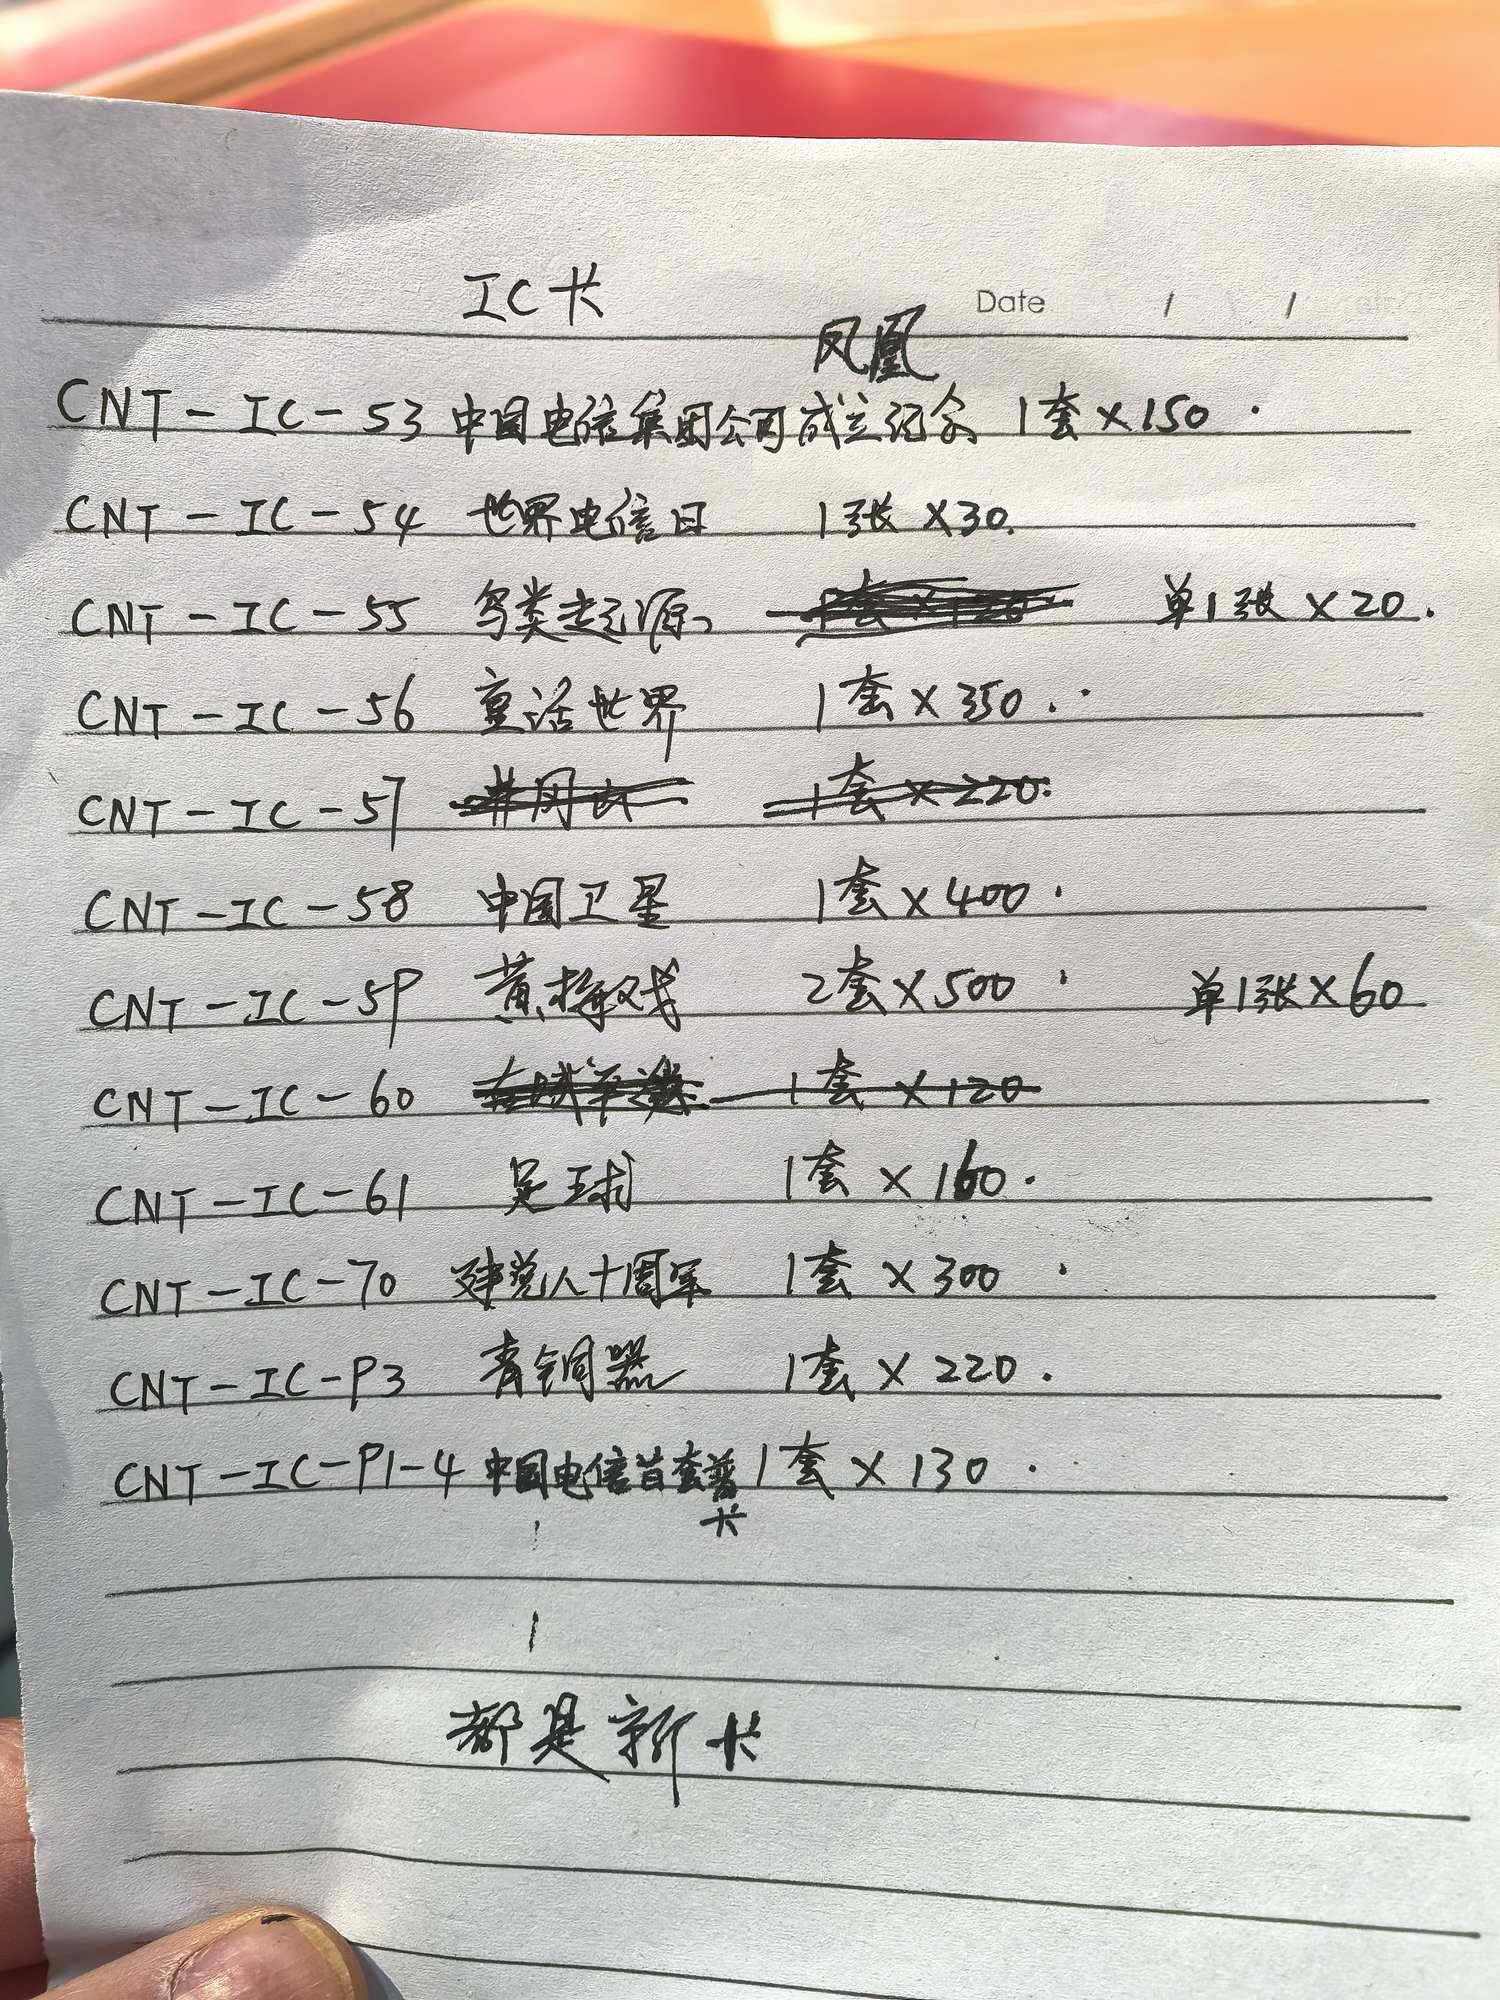 IC卡
Date / /
凤凰
CNT-IC-53 中国电信集团公司成立纪念 1套×150.
CNT-IC-54 世界电信日 1张×30.
CNT-IC-55 鸟类起源 1套×120 单1张×20.
CNT-IC-56 童话世界 1套×350.
CNT-IC-57 井冈山 1套×220.
CNT-IC-58 中国卫星 1套×400.
CNT-IC-59 黄梅戏 2套×500. 单1张×60
CNT-IC-60 1套×120
CNT-IC-61 足球 1套×160.
CNT-IC-70 建党八十周年 1套×300.
CNT-IC-P3 青铜器 1套×220.
CNT-IC-P1-4 中国电信首套普 1套×130.
卡
都是新卡